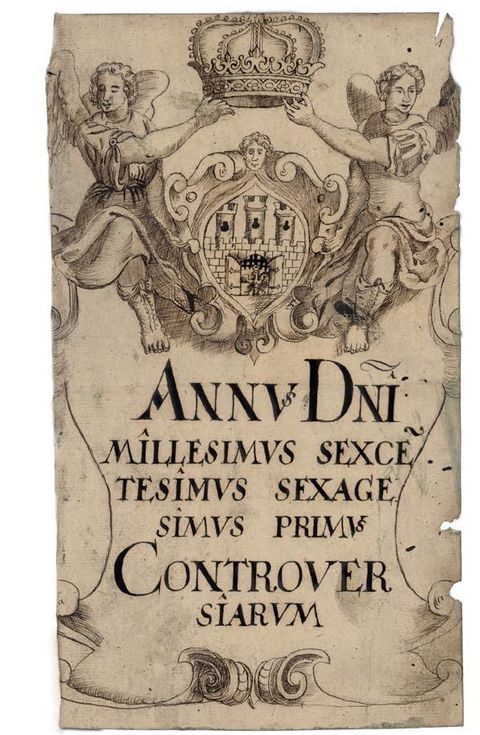 ANNVS DÑI
MILLESIMVS SEXCẼ
TESIMVS SEXAGE
SIMVS PRIMVS
CONTROVER
SIARVM